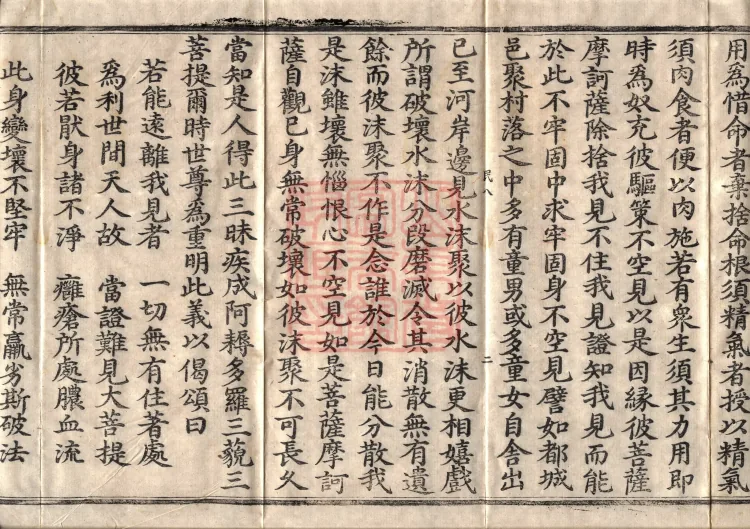 用爲惜命者棄捨命根須精氣者授以精氣
須肉食者便以肉施若有衆生須其力用即
時為奴充彼驅策不空見以是因緣彼菩薩
摩訶薩除捨我見不住我見證知我見而能
於此不牢固中求牢固身不空見譬如都城
邑聚村落之中多有童男或多童女自舍出
民八 二
已至河岸邊見水沫聚以彼水沫更相嬉戲
所謂破壞水沫分段磨滅令其消散無有遺
餘而彼沫聚不作是念誰於今日能分散我
是沫雖壞無惱恨心不空見如是菩薩摩訶
薩自觀已身無常破壞如彼沫聚不可長久
當知是人得此三昧疾成阿耨多羅三藐三
菩提爾時世尊爲重明此義以偈頌曰
若能遠離我見者 一切無有住著處
爲利世間天人故 當證難見大菩提
彼若猒身諸不淨 癰瘡所處膿血流
此身變壞不堅牢 無常羸劣斯破法